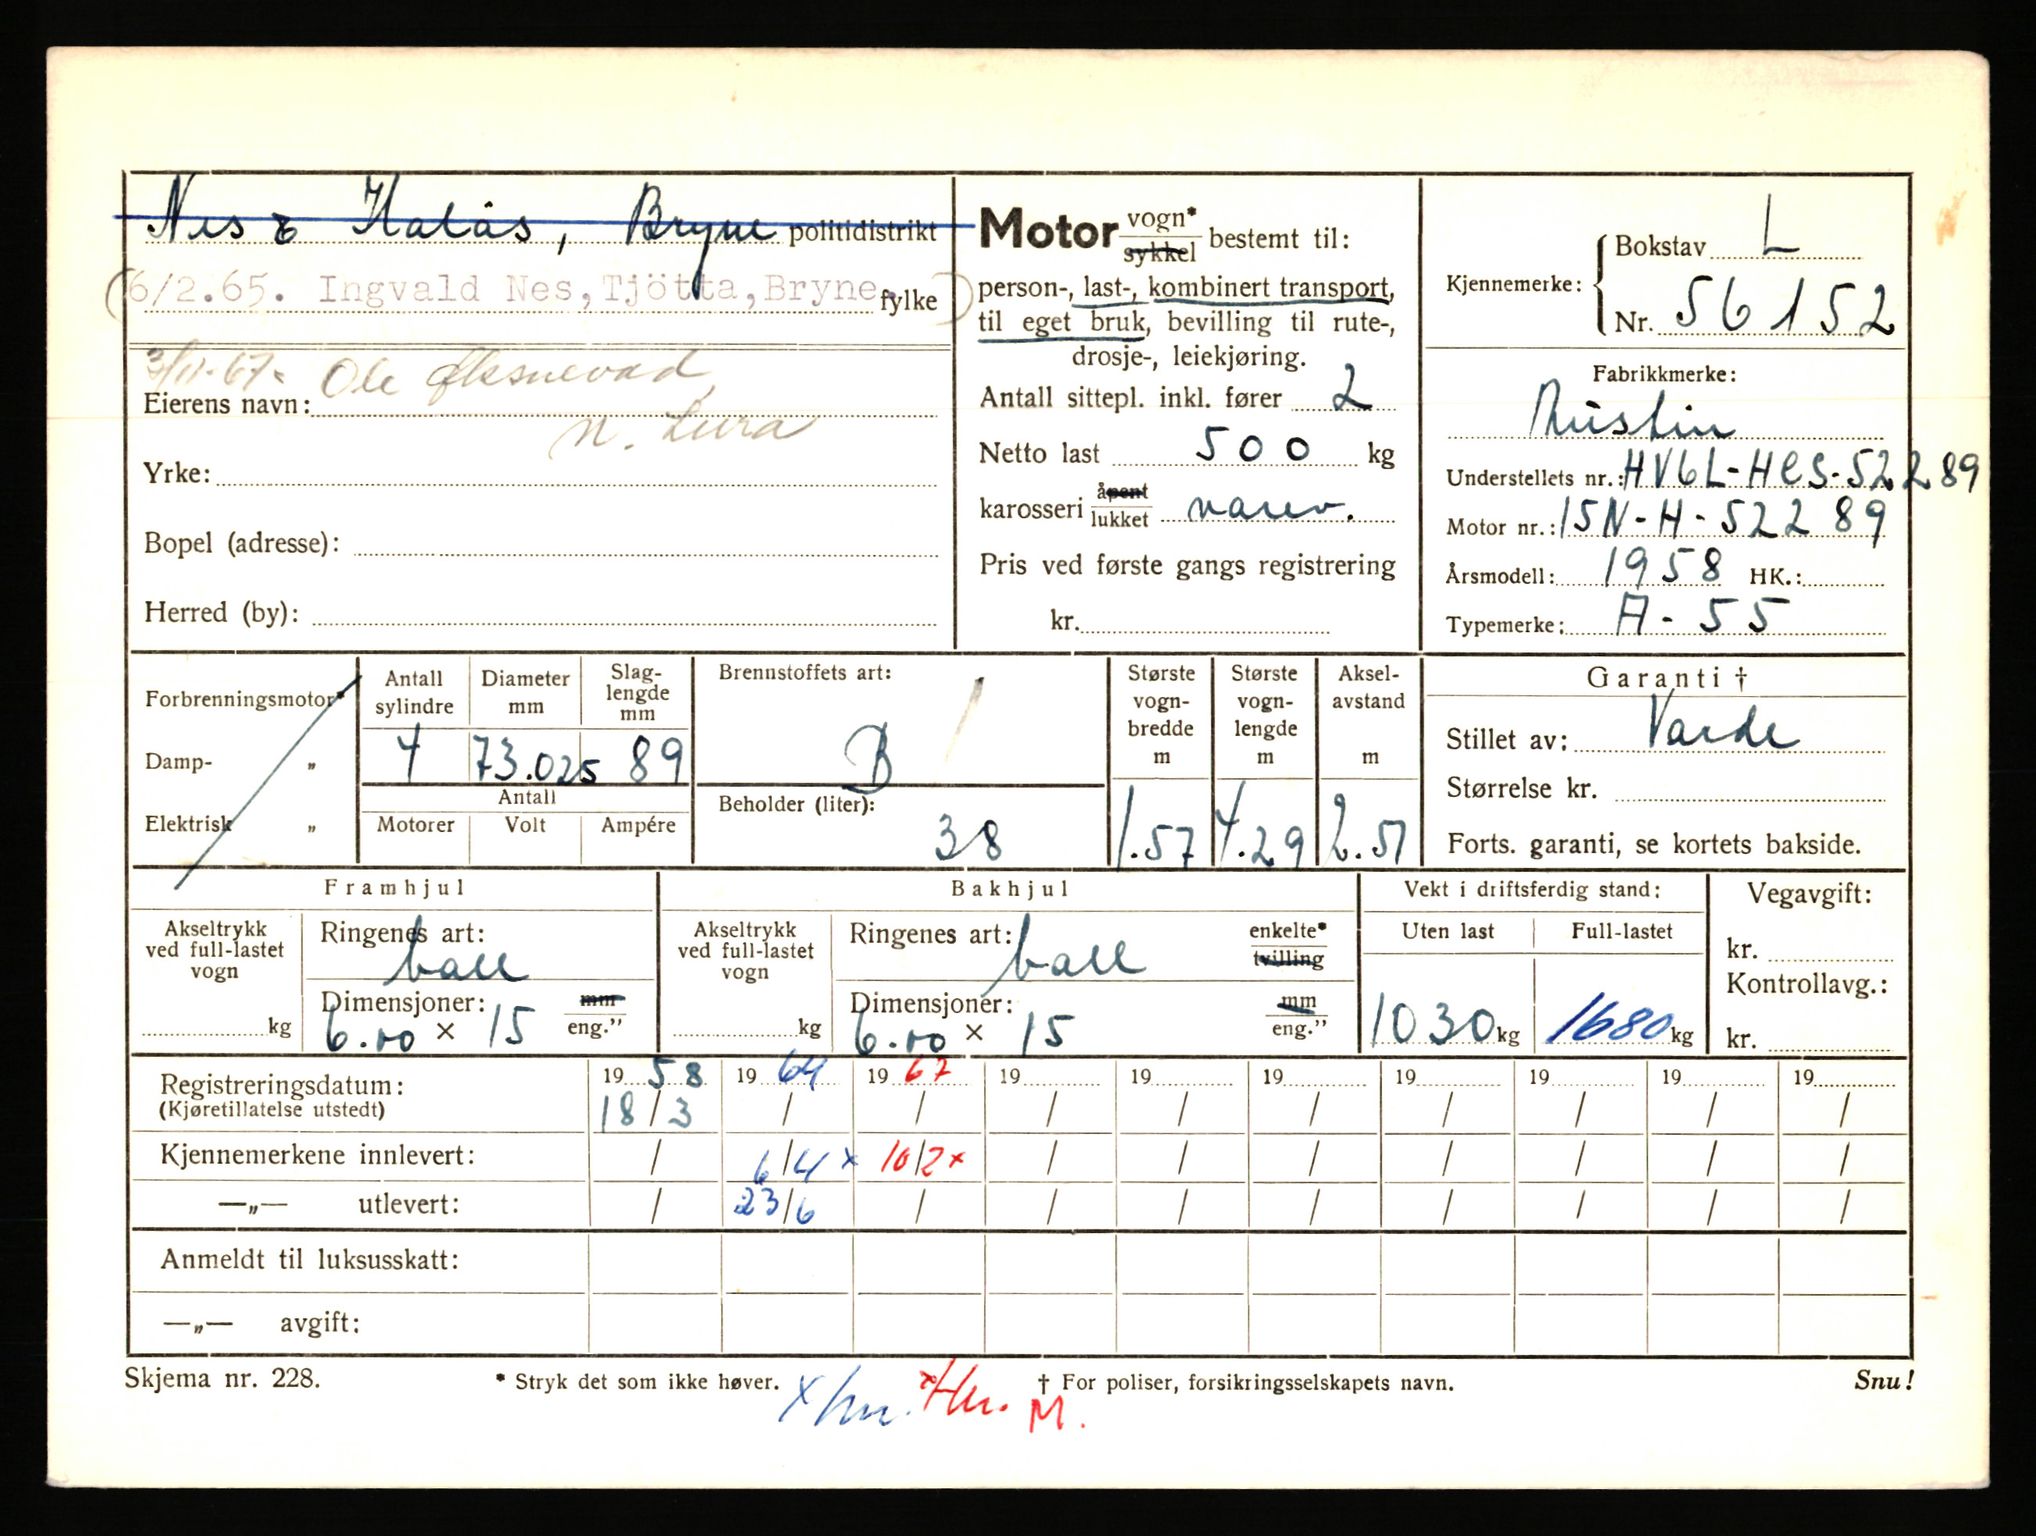 Nes & Halås, Bryne politidistrikt
(6/2.65. Ingvald Nes, Tjötta, Bryne. fylke)
3/11-67. Ole Øksnevad,
Eierens navn:
N. Lura
Yrke:
Bopel (adresse):
Herred (by):
Motor vogn* sykkel bestemt til:
person-, last-, kombinert transport,
til eget bruk, bevilling til rute-,
drosje-, leiekjøring.
Antall sittepl. inkl. fører 2
Netto last 500 kg
karosseri åpent lukket varev.
Pris ved første gangs registrering
kr.
Kjennemerke: Bokstav L
Nr. 56152
Fabrikkmerke:
Austin
Understellets nr.: HV6L-HCS-52289
Motor nr.: 15N-H-52289
Årsmodell: 1958 HK.:
Typemerke: A-55
Forbrenningsmotor*
Damp- „
Elektrisk „
Antall sylindre 4
Diameter mm 73.025
Slag-lengde mm 89
Antall
Motorer Volt Ampére
Brennstoffets art:
B
Beholder (liter):
38
Største vogn-bredde m 1.57
Største vogn-lengde m 4.29
Aksel-avstand m 2.51
Garanti †
Stillet av: Varde
Størrelse kr.
Forts. garanti, se kortets bakside.
Framhjul
Akseltrykk ved full-lastet vogn
kg
Ringenes art:
ball
Dimensjoner: mm eng."
6.00 × 15
Bakhjul
Akseltrykk ved full-lastet vogn
kg
Ringenes art: enkelte* tvilling
ball
Dimensjoner: mm eng."
6.00 × 15
Vekt i driftsferdig stand:
Uten last Full-lastet
1030 kg 1680 kg
Vegavgift:
kr.
Kontrollavg.:
kr.
Registreringsdatum: 19 58 19 64 19 67 19 19 19 19 19 19 19
(Kjøretillatelse utstedt) 18/3 / / / / / / / / /
Kjennemerkene innlevert: / 6/4 x 10/2 x / / / / / / /
—„— utlevert: / 23/6 / / / / / / / /
Anmeldt til luksusskatt:
—„— avgift:
Skjema nr. 228. * Stryk det som ikke høver. † For poliser, forsikringsselskapets navn. Snu!
M.